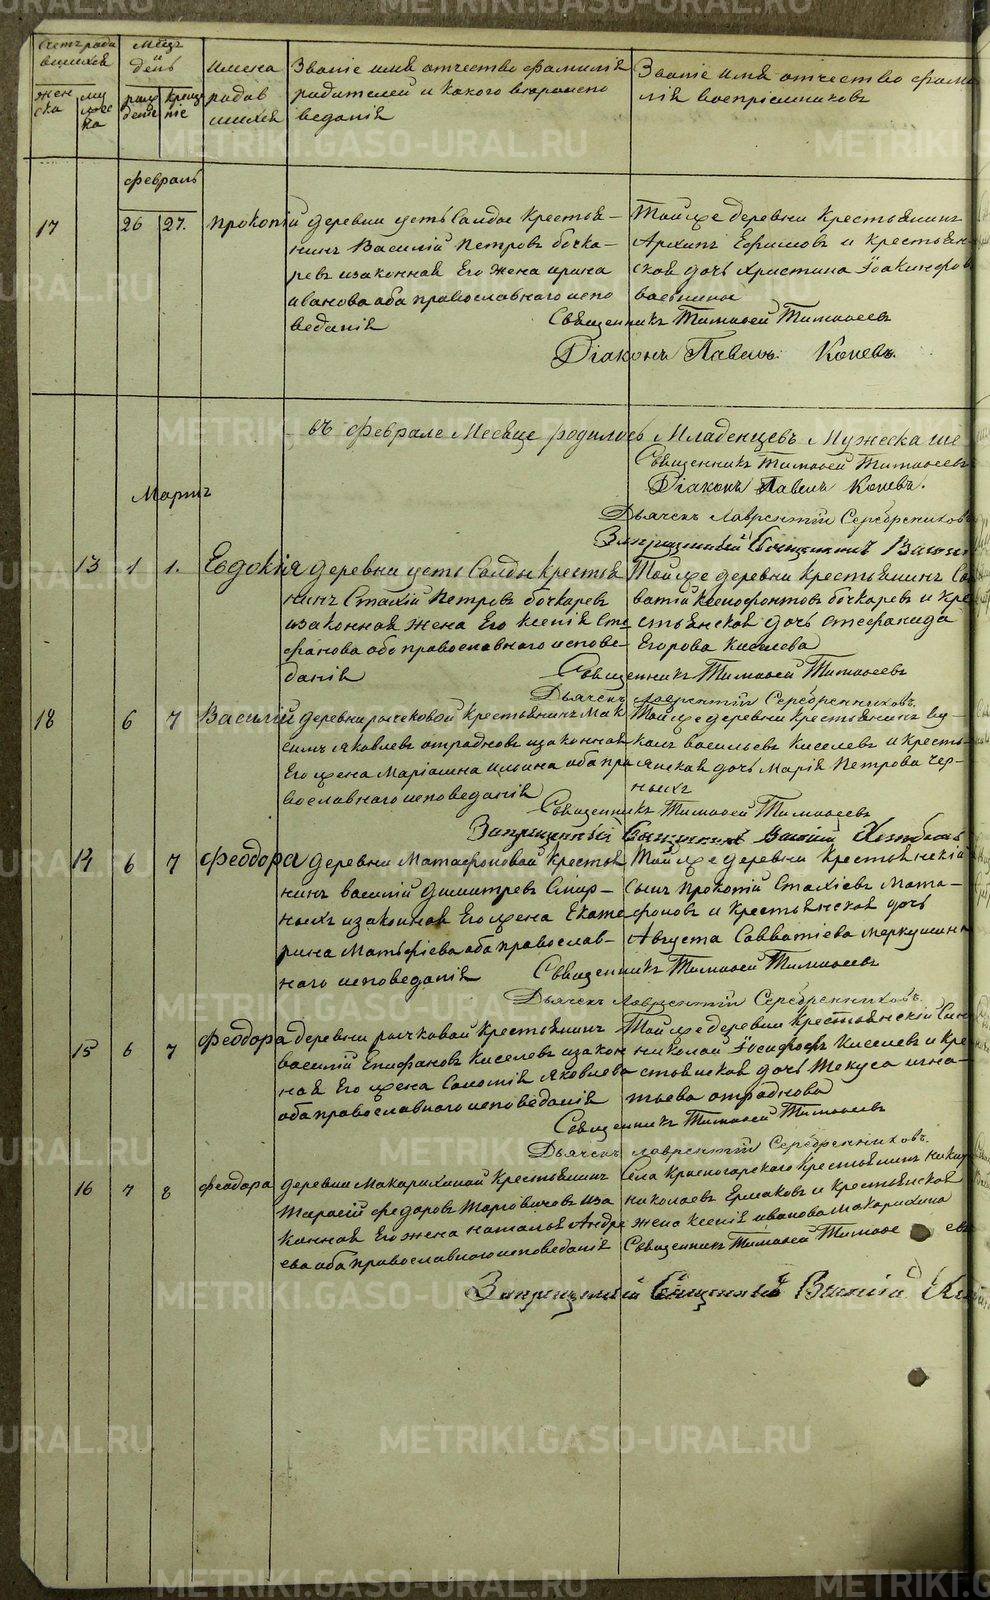 METRIKI.GASO-URAL.RU
Счетъ роди
вшихся
Мѣцъ
и
день
Имена
родив
шихся
Званіе имя отчество фамилія
родителей и какого вѣроиспо
веданія
Званіе имя отчество фами
лія воспріемниковъ
жен
ска
му
жес
ка
рож
деніе
креще
ніе
февраль
17 26 27. Прокопій
деревни усть Салды Крестья-
нинъ Василій Петровъ Бочка-
ревъ и законная Его жена Ирина
Иванова оба православнаго испо
веданія
Той же деревни Крестьянинъ
Архипъ Ефимовъ и Крестьян
ская дочь Христина Іоакинфов
Священникъ Тимофей Тимофеевъ
Діаконъ Павелъ Коневъ.
въ феврале Месяце родилось Младенцевъ Мужеска
Священникъ Тимофей Тимофеевъ
Діаконъ Павелъ Коневъ.
Дьячекъ Лаврентій Серебрениковъ
Запрещенный Священникъ
Мартъ
13 1 1. Евдокія
деревни усть Салды Крестья
нинъ Стахій Петровъ Бочкаревъ
и законная жена Его Ксенія Сте
фанова оба православнаго испове-
данія
Той же деревни Крестьянинъ Са
ватій Ксенофонтовъ Бочкаревъ и Кре
стьянская дочь Стефанида
Егорова Киселева
Священникъ Тимофей Тимофеевъ
Дьячекъ Лаврентій Серебренниковъ.
18 6 7 Василій
деревни рычковой Крестьянинъ Мак
симъ Яковлевъ отрадновъ и законная
Его жена Маріамна Ильина оба пра
вославнаго исповеданія
Той же деревни Крестьянинъ Лу-
каи Васильевъ Киселевъ и Кресть-
янская дочь Марія Петрова Чер-
ныхъ
Священникъ Тимофей Тимофеевъ
Запрещенный Священникъ Василій
14 6 7 Феодора
деревни Матафоновой Крестья
нинъ Василій Димитревъ Смир-
ныхъ и законная Его жена Екате
рина Матьфіева оба православ-
наго исповеданія
Той же деревни Крестьянскій
сынъ Прокопій Стахіевъ Мата-
фоновъ и Крестьянская дочь
Августа Савватіева Меркушин
Священникъ Тимофей Тимофеевъ
Дьячекъ Лаврентій Серебренниковъ.
15 6 7 Феодора
деревни рычковой Крестьянинъ
Василій Епифановъ Киселевъ и закон
ная Его жена Саломія Яковлева
оба православнаго исповеданія
Той же деревни Крестьянской Сын
Николай Іосифовъ Киселевъ и Кре
стьянская дочь Текуса Игна-
тьева отраднова
Священникъ Тимофей Тимофеевъ
Дьячекъ Лаврентій Серебренниковъ.
16 7 8 Феодора
деревни Макарихиной Крестьянинъ
Тарасій Федоровъ и за
конная Его жена Наталья Андре
ева оба православнаго исповеданія
Села Красногорскаго Крестьянинъ
Николаевъ Ермаковъ и Крестьянская
жена Ксенія Иванова Макарихина
Священникъ Тимофей Тимофе евъ
Запрещенный Священникъ Василій